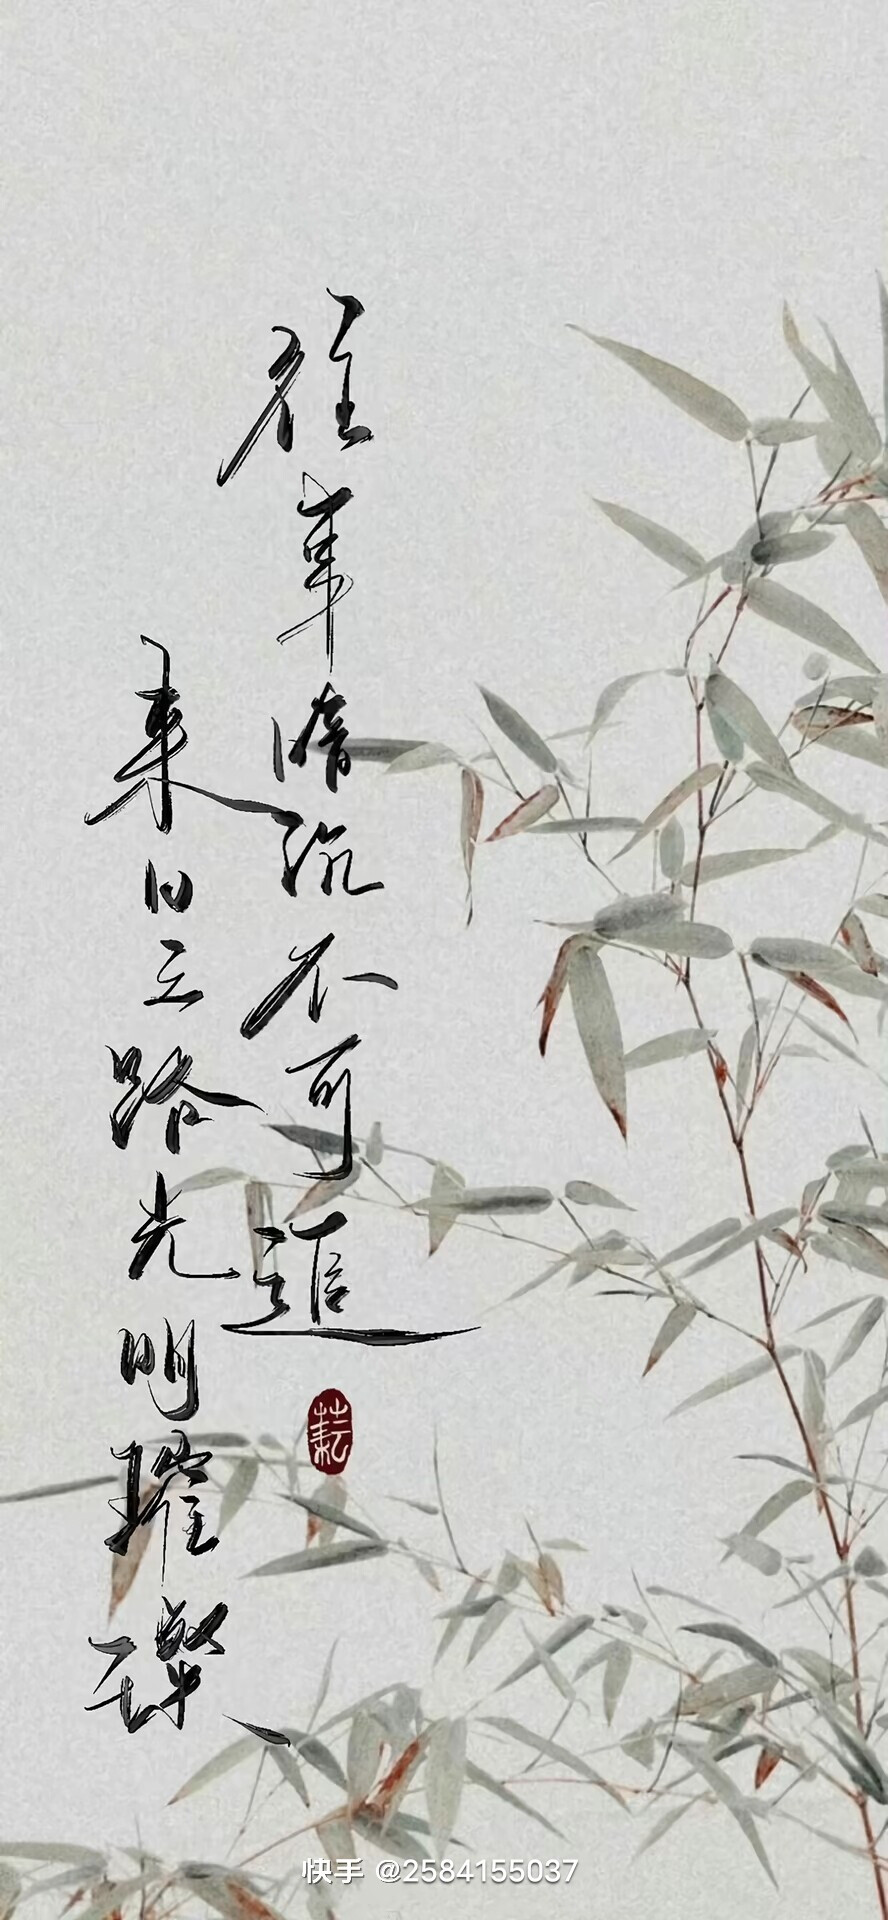 往事暗沉不可追
来日之路光明璀璨
耘
快手 @2584155037